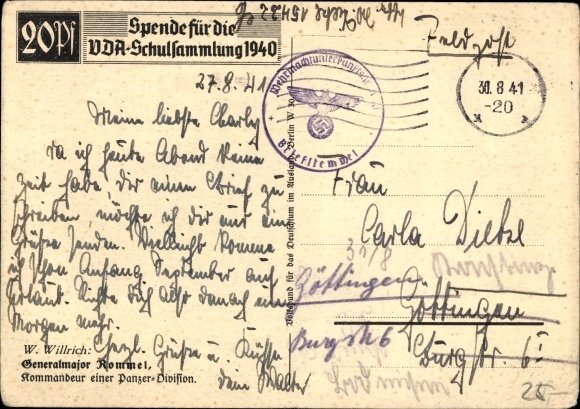 20Pf
Spende für die
VDA-Schulsammlung 1940
27.8.41
Meine liebste Charly
da ich heute Abend keine
Zeit habe, dir einen Brief zu
schreiben möchte ich dir nur ein
Grüße senden. Vielleicht komme
ich schon Anfang September auf
Urlaub. Richte dich also danach ein
Morgen mehr.
Herzl. Grüße u. Küsse
dein Walter
W. Willrich:
Generalmajor Rommel,
Kommandeur einer Panzer-Division.
Volksbund für das Deutschtum im Ausland, Berlin W 30
Feldpost
Briefstempel
30.8.41
-20
Frau
Carla Dietze
31/8
Göttingen
Göttingen
Burgstr. 6
Burgstr. 6
25-